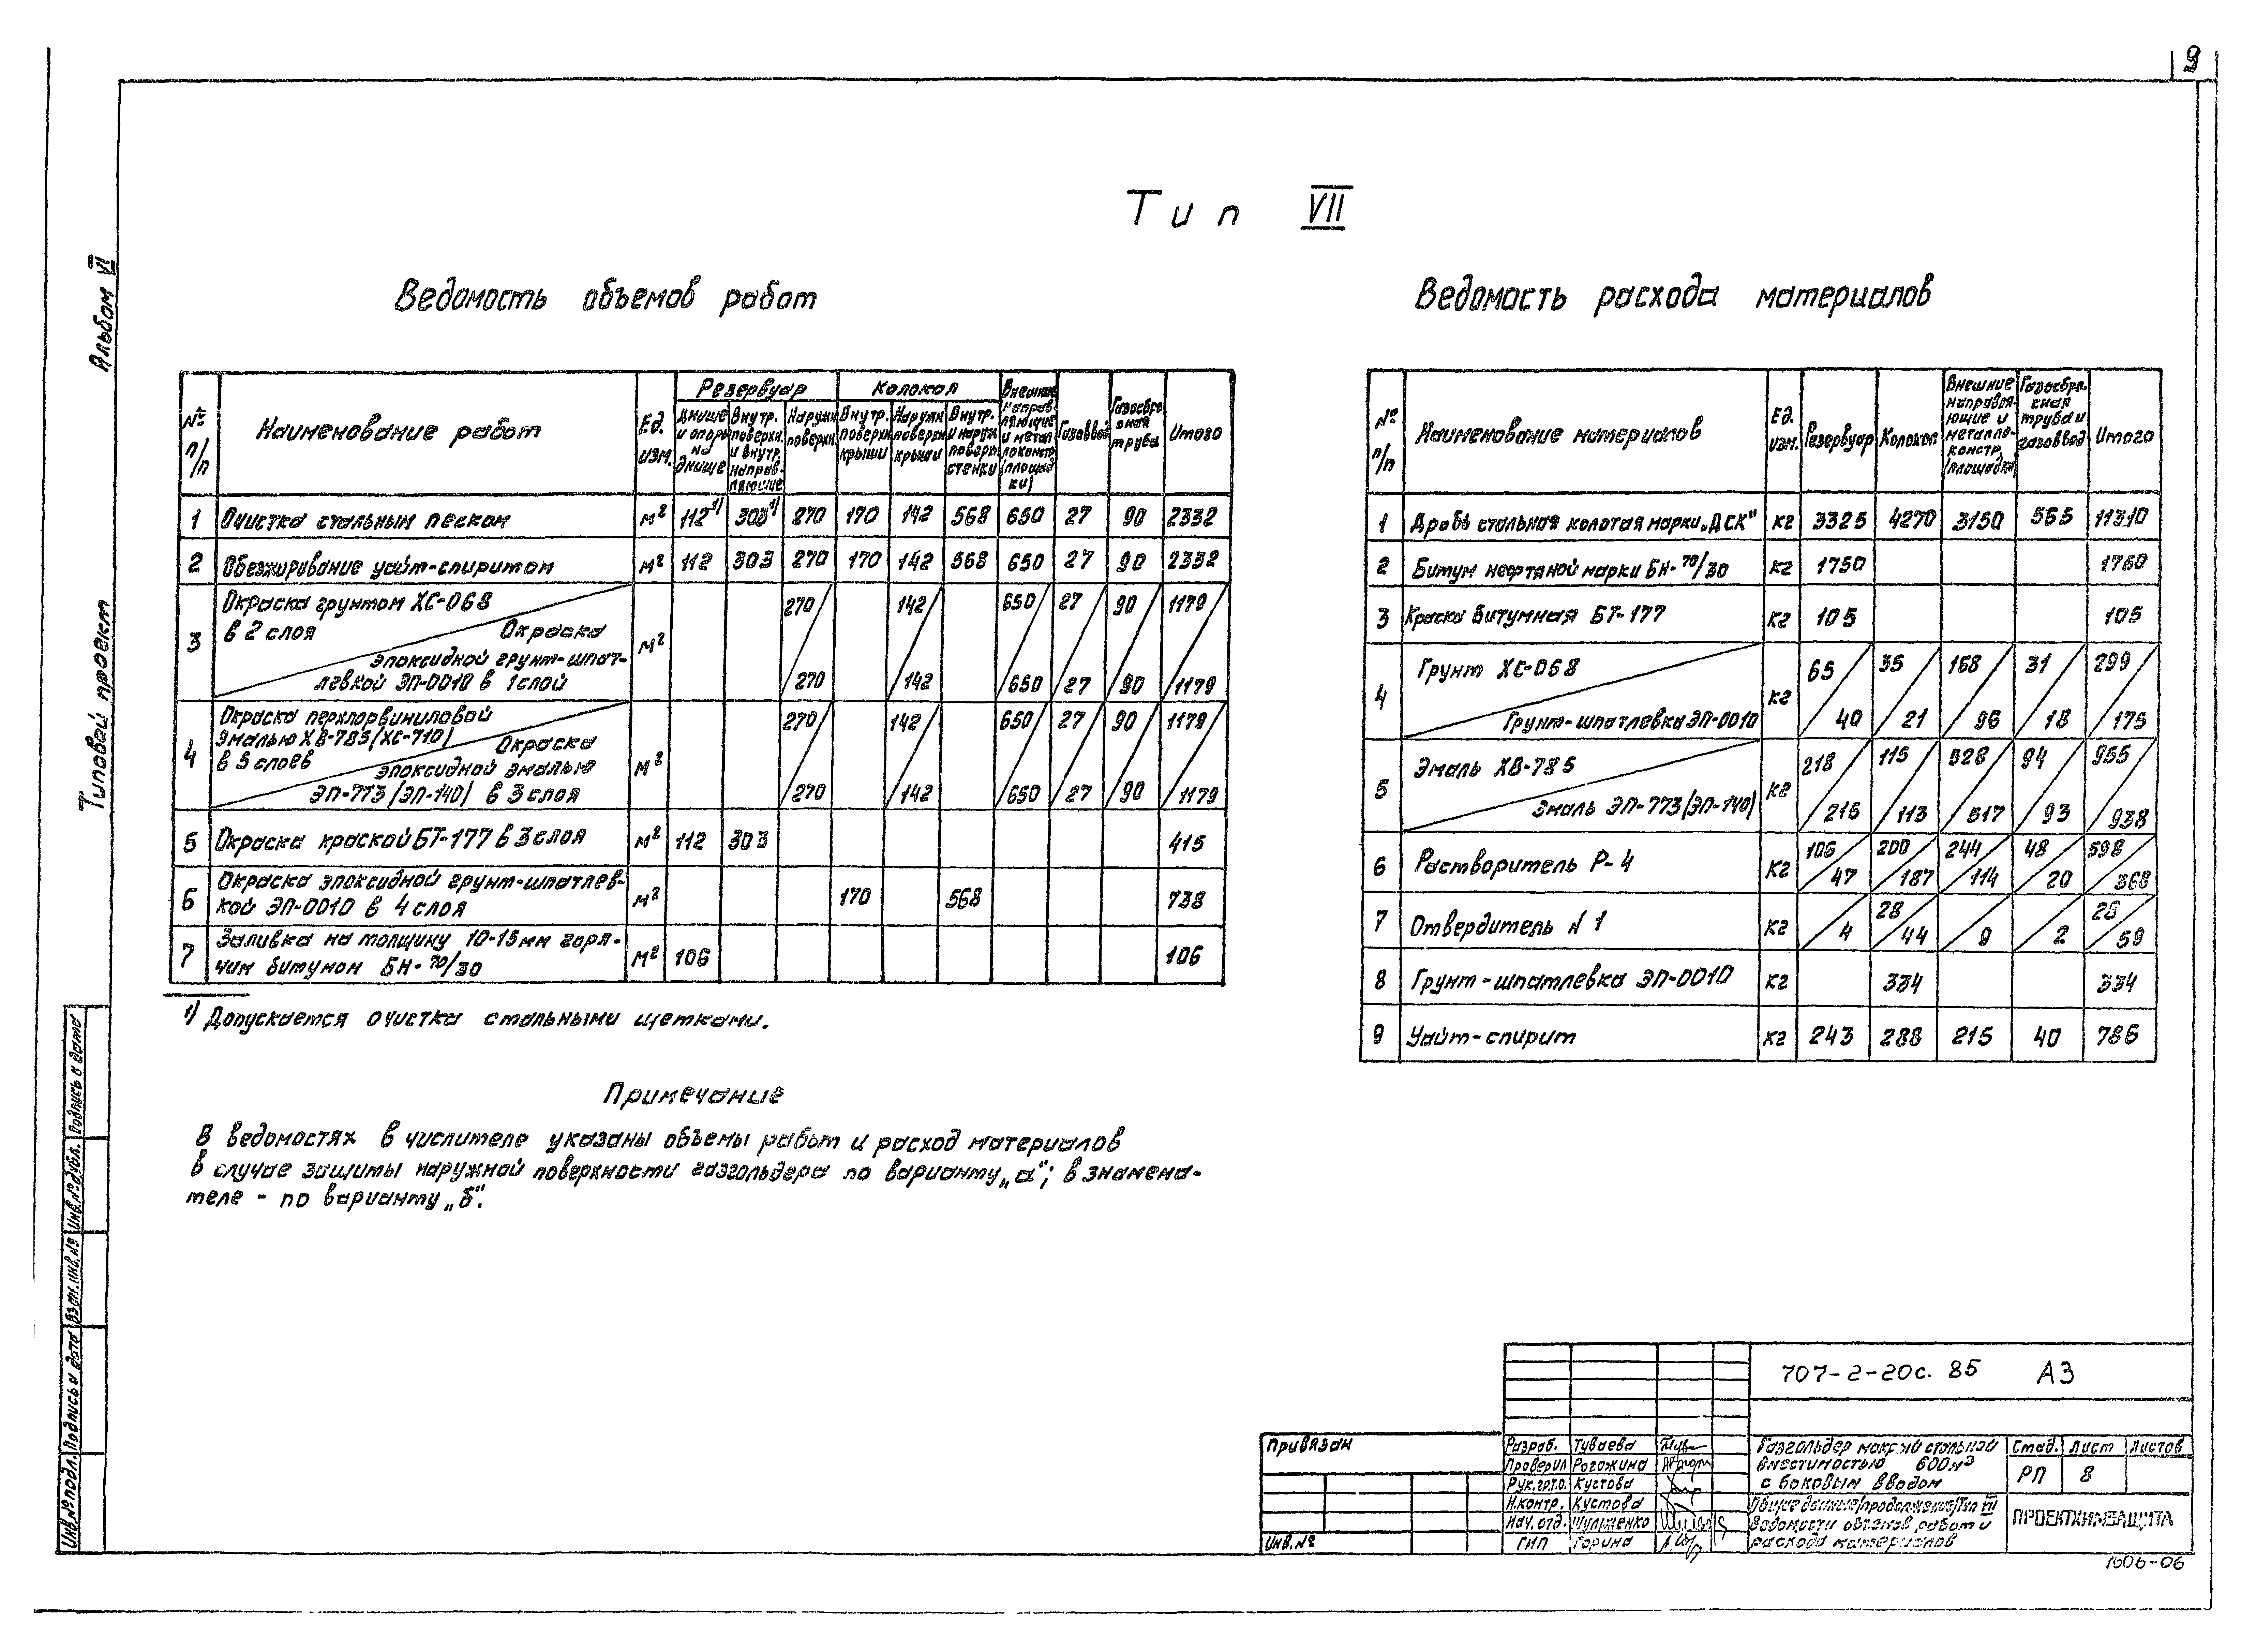 9
Тип VII
Альбом VI
Типовой проект
Ведомость объемов работ
№ п/п | Наименование работ | Ед. изм. | Резервуар | Колокол | Внешние направляющие и металлоконстр (площадки) | Газоввод | Газосбросная труба | Итого
Днище и опоры на днище | Внутр. поверхн. и внутр. направляющие | Наружн поверхн. | Внутр. поверхн крыши | Наружн поверхн крыши | Внутр. и наружн поверхн стенки
1 | Очистка стальным песком | м² | 112¹⁾ | 303¹⁾ | 270 | 170 | 142 | 568 | 650 | 27 | 90 | 2332
2 | Обезжиривание уайт-спиритом | м² | 112 | 303 | 270 | 170 | 142 | 568 | 650 | 27 | 90 | 2332
3 | Окраска грунтом ХС-068 | 270 | 142 | 650 | 27 | 90 | 1179
в 2 слоя Окраска | м²
эпоксидной грунт-шпат-
левкой ЭП-0010 в 1 слой | 270 | 142 | 650 | 27 | 90 | 1179
4 | Окраска перхлорвиниловой | 270 | 142 | 650 | 27 | 90 | 1179
эмалью ХВ-785 (ХС-710)
в 5 слоев Окраска
эпоксидной эмалью | м²
ЭП-773 (ЭП-140) в 3 слоя | 270 | 142 | 650 | 27 | 90 | 1179
5 | Окраска краской БТ-177 в 3 слоя | м² | 112 | 303 | 415
6 | Окраска эпоксидной грунт-шпатлев-
кой ЭП-0010 в 4 слоя | м² | 170 | 568 | 738
7 | Заливка на толщину 10-15мм горя-
чим битумом БН-70/30 | м² | 106 | 106
¹⁾ Допускается очистка стальными щетками.
Примечание
В ведомостях в числителе указаны объемы работ и расход материалов
в случае защиты наружной поверхности газгольдера по варианту „а"; в знамена-
теле - по варианту „б".
Ведомость расхода материалов
№ п/п | Наименование материалов | Ед. изм. | Резервуар | Колокол | Внешние направляющие и металлоконстр. (площадки) | Газосбросная труба и газоввод | Итого
1 | Дробь стальная колотая марки „ДСК" | кг | 3325 | 4270 | 3150 | 565 | 11310
2 | Битум нефтяной марки БН-70/30 | кг | 1750 | 1750
3 | Краска битумная БТ-177 | кг | 105 | 105
4 | Грунт ХС-068 | кг | 65 | 35 | 168 | 31 | 299
Грунт-шпатлевка ЭП-0010 | 40 | 21 | 96 | 18 | 175
5 | Эмаль ХВ-785 | кг | 218 | 115 | 528 | 94 | 955
Эмаль ЭП-773 (ЭП-140) | 215 | 113 | 517 | 93 | 938
6 | Растворитель Р-4 | кг | 106 | 200 | 244 | 48 | 598
47 | 187 | 114 | 20 | 368
7 | Отвердитель N 1 | кг | 28 | 28
4 | 44 | 9 | 2 | 59
8 | Грунт-шпатлевка ЭП-0010 | кг | 334 | 334
9 | Уайт-спирит | кг | 243 | 288 | 215 | 40 | 786
Инв.№подл. Подпись и дата Взам.инв.№ Инв.№дубл. Подпись и дата
Привязан
Инв.№
707-2-20с.85 А3
Разраб. Туваева
Проверил Рогожина
Рук.гр.т.о. Кустова
Н.контр. Кустова
Нач.отд. Шульженко
ГИП Горина
Газгольдер мокрый стальной
вместимостью 600м³
с боковым вводом
Стад. Лист Листов
РП 8
Общие данные (продолжение) Тип VII
Ведомости объемов работ и
расхода материалов
ПРОЕКТХИМЗАЩИТА
1606-06